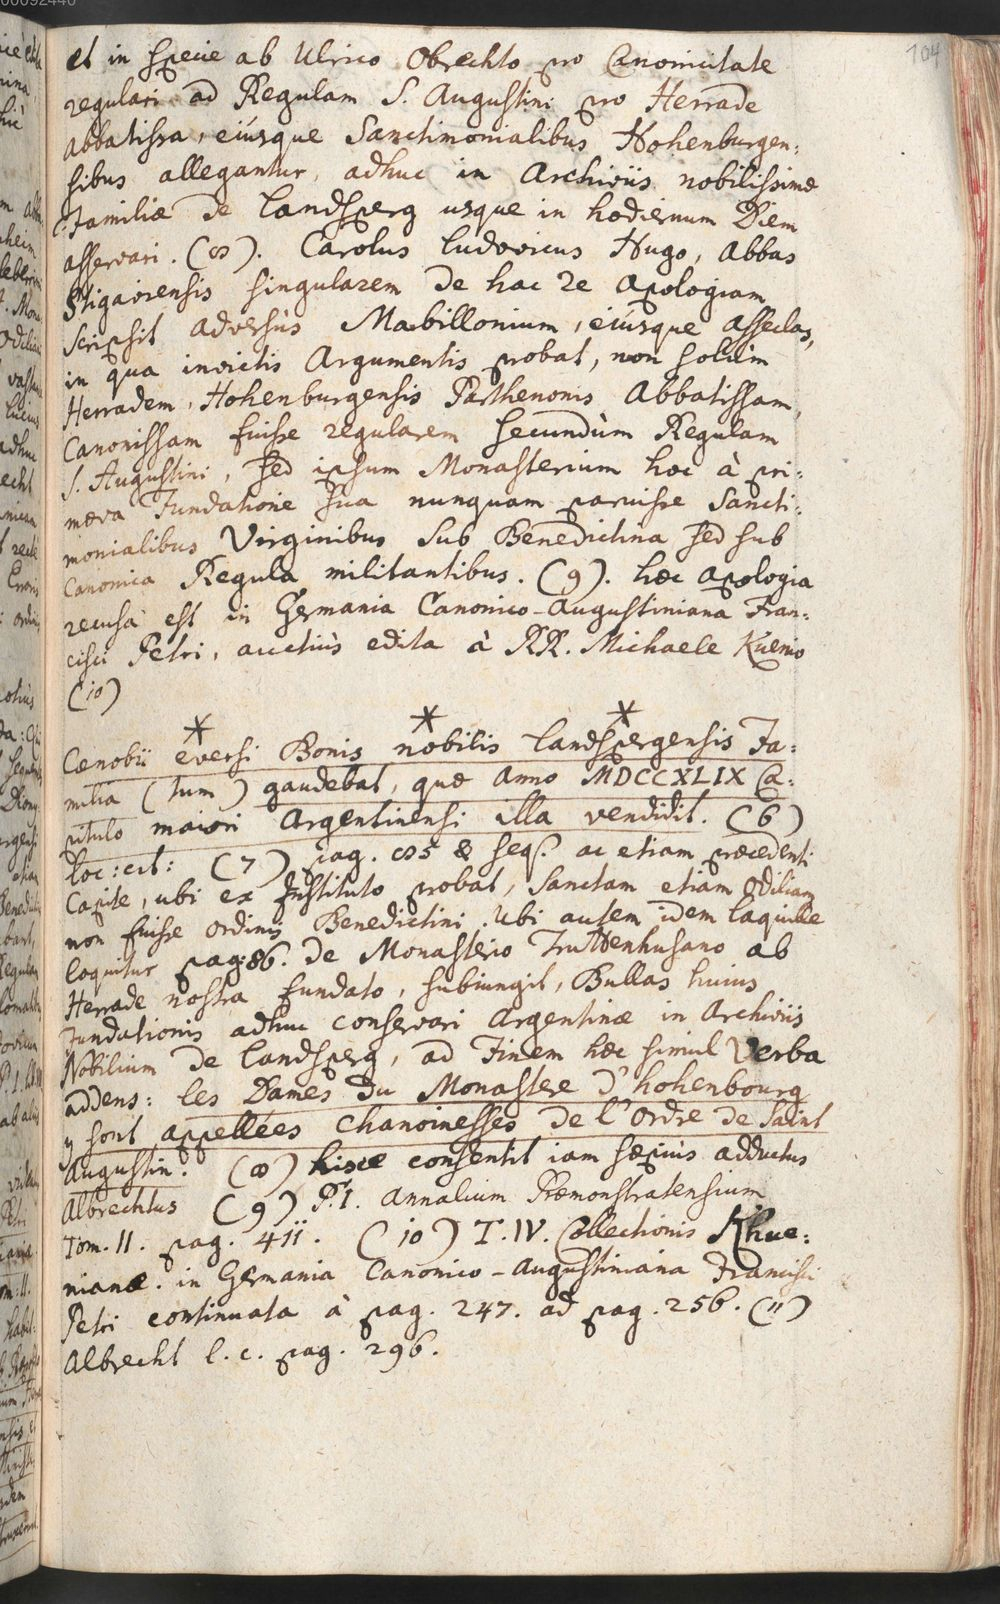 104
et in specie ab Ulrico Obrechto pro Canonicitate
regulari ad Regulam S. Augustini pro Herrade
abbatissa, eiúsque Sanctimonialibus Hohenburgen:
sibus allegantur, adhuc in Archiviis nobilissimæ
Familiæ de Landsperg usque in hodiernum Diem
asservari. (8). Carolus Ludovicus Hugo, Abbas
Stigaiensis singularem de hac re Apologiam
scripsit adversùs Mabillonium, eiúsque asseclas,
in qua invictis Argumentis probat, non solùm
Herradem, Hohenburgensis Parthenonis Abbatissam,
Canonissam fuisse regularem secundùm Regulam
S. Augustini, sed ipsum Monasterium hoc à pri:
mæva Fundatione sua nunquam paruisse Sancti:
monialibus Virginibus sub Benedictina sed sub
Canonica Regula militantibus. (9). hæc apologia
recusa est in Germania Canonico-Augustiniana Fran:
cisci Petri, auctiùs edita à RR. Michaele Kuenio
(10)
* * *
Cænobii eversi Bonis nobilis Landspergensis Fa:
milia (tum) gaudebat, quæ Anno MDCCXLIX Ca:
pitulo maiori Argentinensi illa vendidit. (6)
loc: cit: (7) pag. 85 & seq. ac etiam præcedenti
Capite, ubi ex Instituto probat, Sanctam etiam Odiliam
non fuisse ordinis Benedictini. Ubi autem idem Laquille
loquitur pag: 86. de Monasterio Truttenhusano ab
Herrade nostra fundato, subiungit, Bullas huius
Fundationis adhuc conservari Argentinæ in Archiviis
Nobilium de Landsperg, ad Finem hæc simul Verba
addens: les Dames du Monastere d'hohenbourg
y sont appellées Chanoinesses de l'Ordre de Saint
Augustin. (8) hisce consentit iam sæpiùs adductus
Albrechtus (9) P. I. Annalium Præmonstratensium
Tom. II. pag. 411. (10) T. IV. Collectionis Khue:
nianæ. in Germania Canonico-Augustiniana Francisci
Petri continuata à pag. 247. ad pag. 256. (11)
Albrecht l. c. pag. 296.